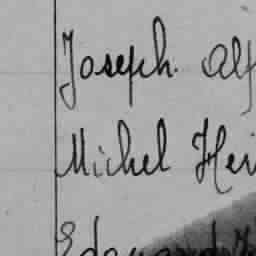 Joseph. Alf
Michel Hei
Edouard